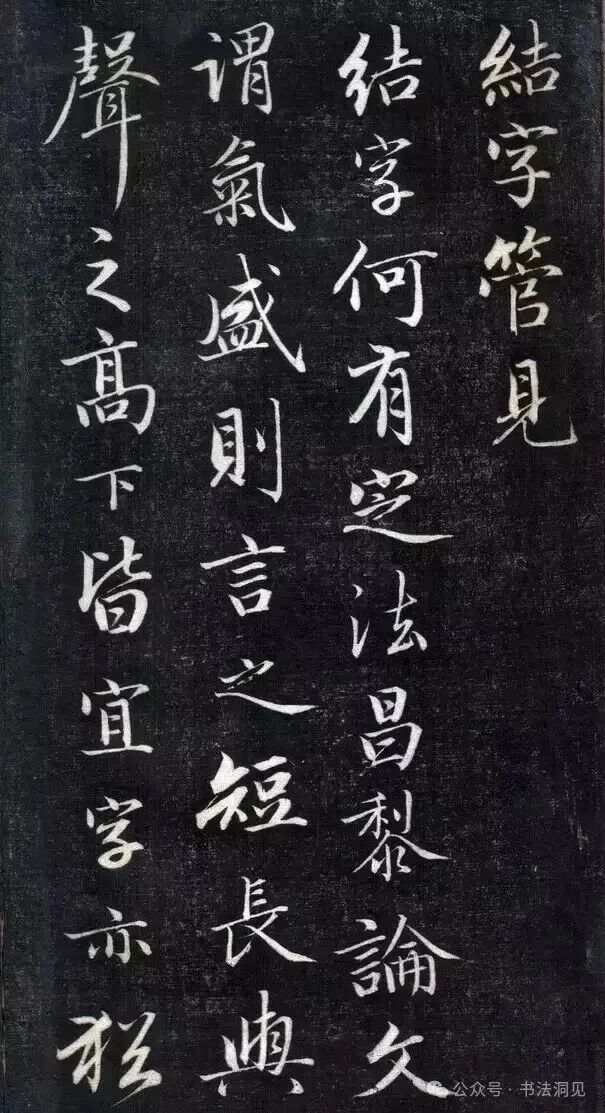 結字管見
結字何有定法昌黎論文
謂氣盛則言之短長與
聲之高下皆宜字亦猶
公众号·书法洞见